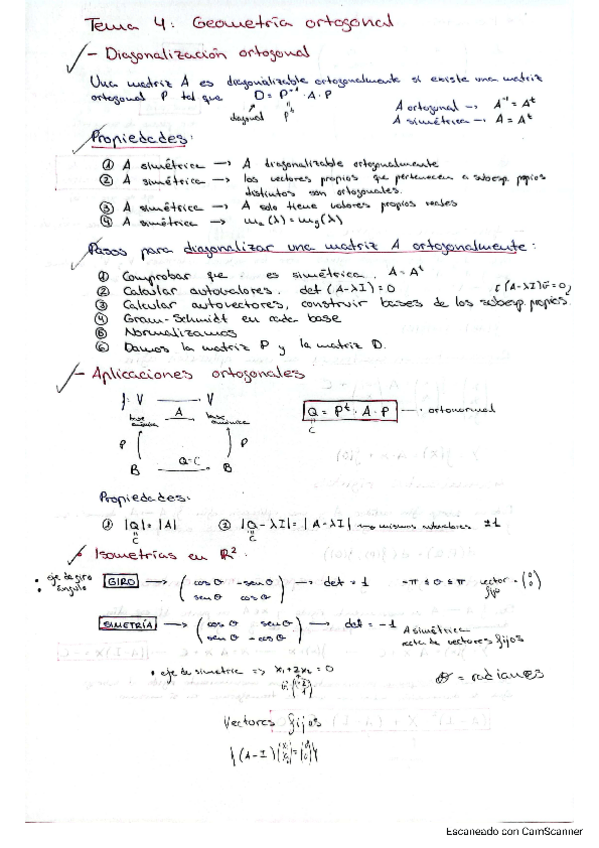 Tema 4: Geometría ortogonal
- Diagonalización ortogonal
Una matriz A es diagonalizable ortogonalmente si existe una matriz
ortogonal P tal que D = P⁻¹ · A · P
diagonal Pᵗ
A ortogonal → A⁻¹ = Aᵗ
A simétrica → A = Aᵗ
Propiedades:
① A simétrica → A diagonalizable ortogonalmente
② A simétrica → los vectores propios que pertenecen a subesp. propios
distintos son ortogonales.
③ A simétrica → A solo tiene valores propios reales
④ A simétrica → mₐ(λ) = m_g(λ)
Pasos para diagonalizar una matriz A ortogonalmente:
① Comprobar que es simétrica. A = Aᵗ
② Calcular autovalores. det(A-λI) = 0
③ Calcular autovectores, construir bases de los subesp. propios.
④ Gram-Schmidt en cada base
⑤ Normalizamos
⑥ Damos la matriz P y la matriz D.
- Aplicaciones ortogonales
f: V → V
A
P P
B Q=C B
Q = Pᵗ · A · P → ortonormal
C
Propiedades:
① |Q| = |A| ② |Q-λI| = |A-λI| → mismos autovalores ±1
C C
Isometrías en R²:
• eje de giro
• ángulo
GIRO → (cos θ -sen θ
sen θ cos θ) → det = 1 -π ≤ θ ≤ π vector fijo = (0 0)
SIMETRÍA → (cos θ sen θ
sen θ -cos θ) → det = -1
A simétrica
recta de vectores fijos
• eje de simetría => x₁+2x₂ = 0
θ = radianes
Vectores fijos